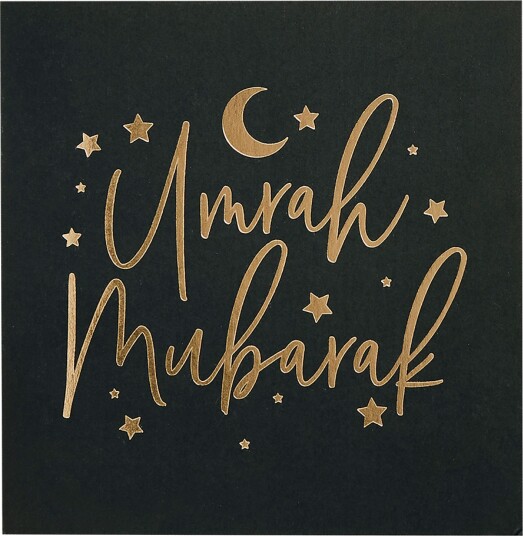 Umrah
Mubarak